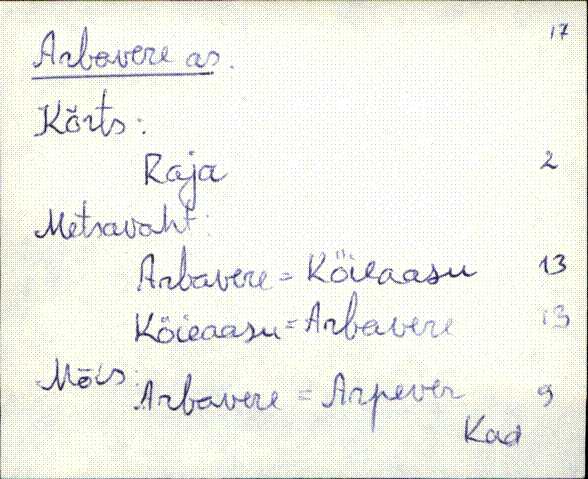 17
Arbavere as.
Kõrts:
Raja 2
Metsavaht:
Arbavere = Kõieaasu 13
Kõieaasu = Arbavere 13
Mõis:
Arbavere = Arpever 9
Kad